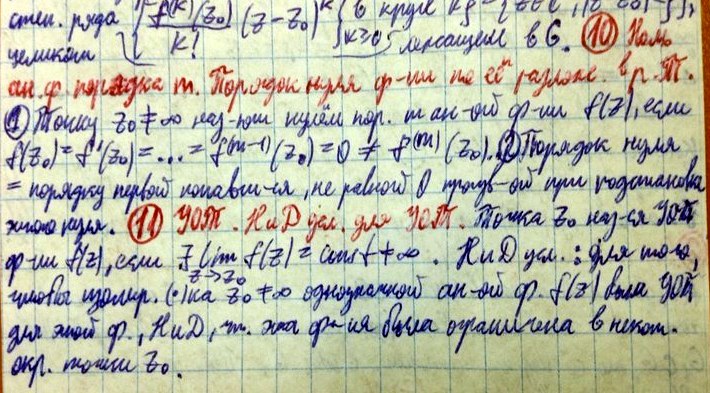 степ. ряда { f^(k)(z₀)/k! (z-z₀)^k } k≥0 в круге
целиком лежащем в G. ⑩ Ноль
ан. ф. порядка m. Порядок нуля ф-ии по её разлож. в р. Т.
① Точку z₀≠∞ наз-ют нулём пор. m ан-ой ф-ии f(z), если
f(z₀)=f'(z₀)=...=f^(m-1)(z₀)=0≠f^(m)(z₀). ② Порядок нуля
= порядку первой попавш-ся, не равной 0 произв-ой при подстановке
этого нуля. ⑪ УОТ. НиД усл. для УОТ. Точка z₀ наз-ся УОТ
ф-ии f(z), если ∃ lim z→z₀ f(z)=const≠∞. НиД усл.: для того,
чтобы изолир. (·)ка z₀≠∞ однозначной ан-ой ф. f(z) была УОТ
для этой ф., НиД, чт. эта ф-ия была ограничена в некот.
окр. точки z₀.